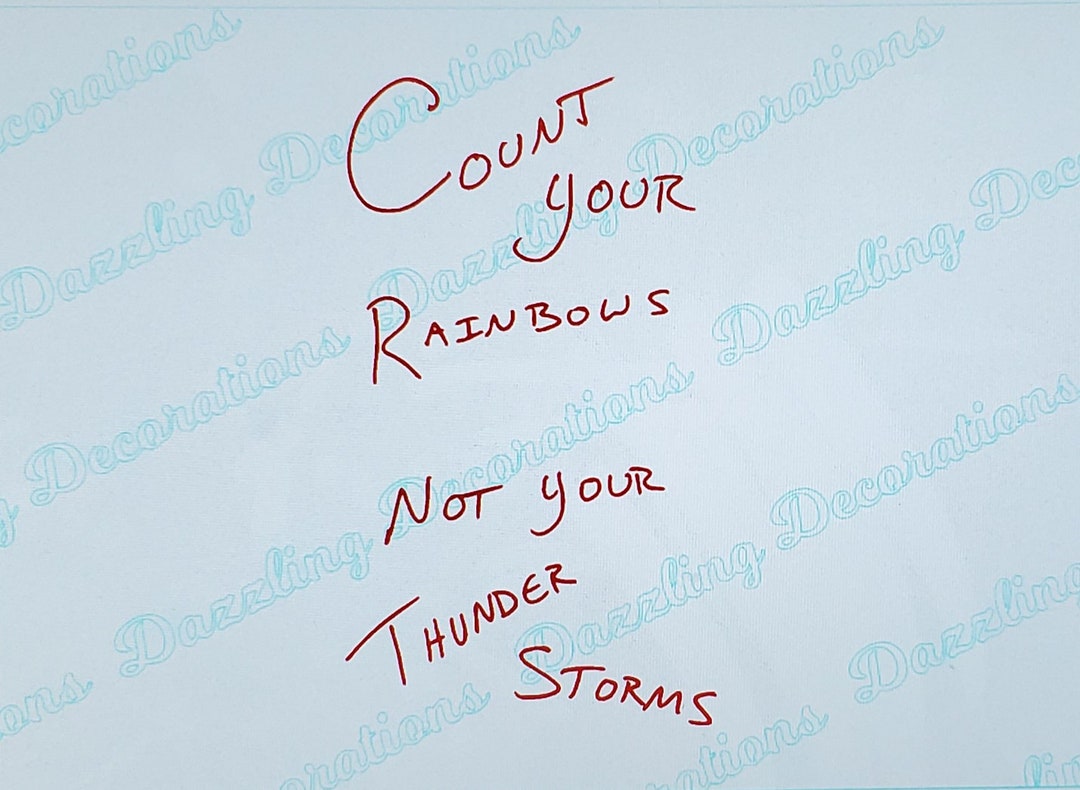 Dazzling Decorations
COUNT
YOUR
RAINBOWS
NOT YOUR
THUNDER
STORMS